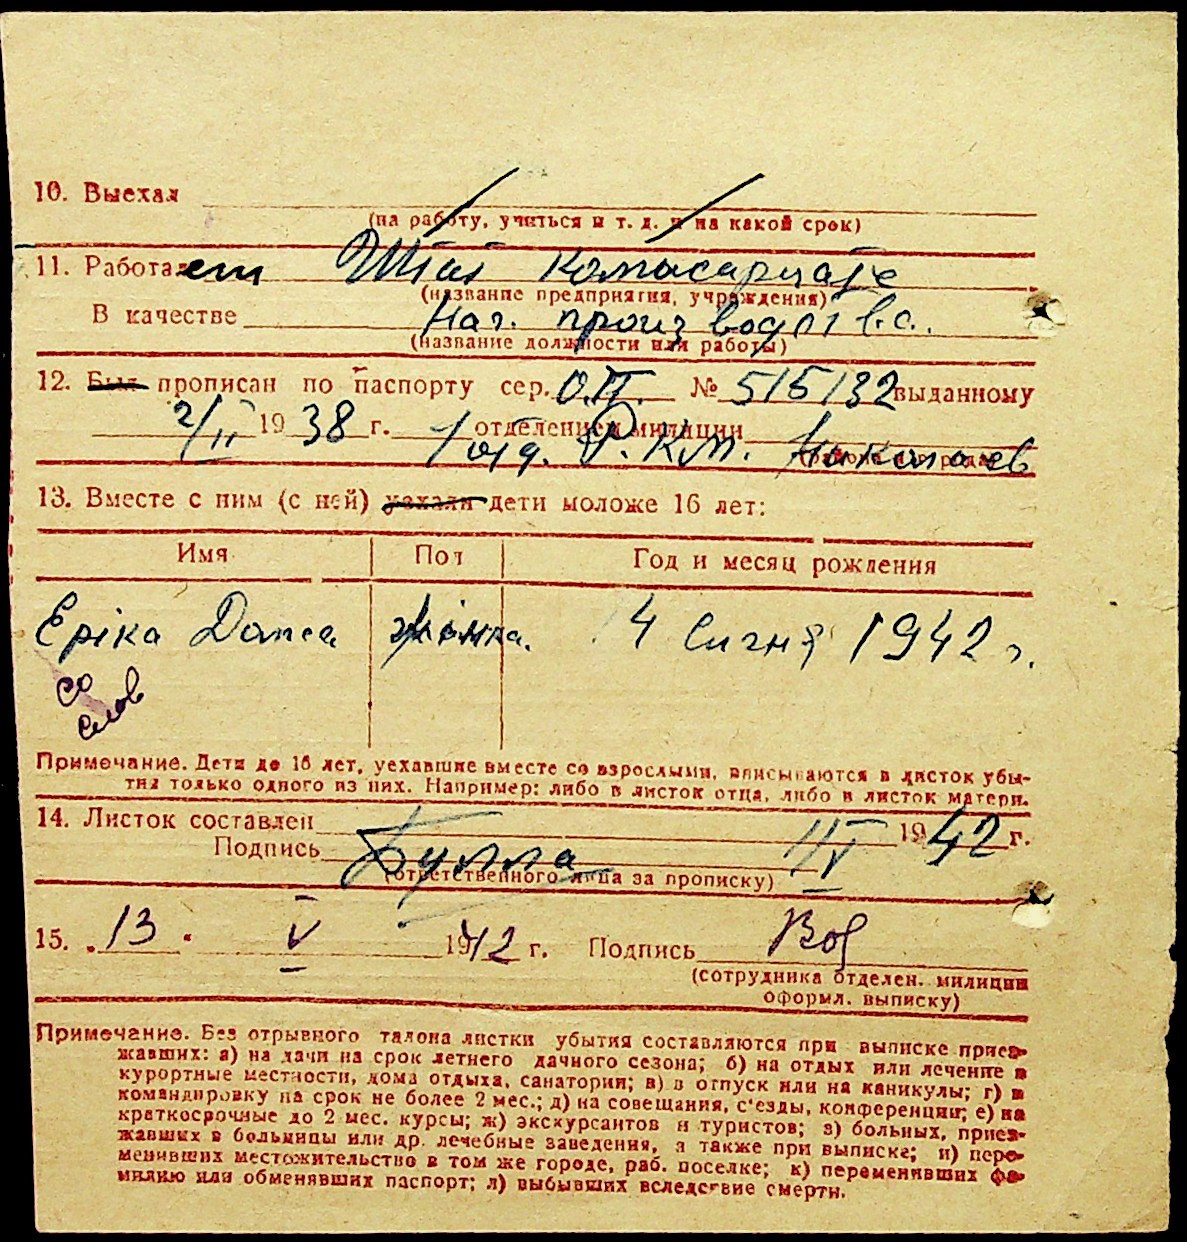 10. Выехал
(на работу, учиться и т. д. и на какой срок)
11. Работает Штат комисариате
(название предприятия, учреждения)
В качестве Нач. производства.
(название должности или работы)
12. Был прописан по паспорту сер. О.П. № 515132 выданному
2/II 19 38 г. 1 отд. отделением милиции Р.К.М. Николаев
13. Вместе с ним (с ней) уехали дети моложе 16 лет:
Имя Пол Год и месяц рождения
Еріка Данса жінка. 4 Сичня 1942 г.
со
слов
Примечание. Дети до 16 лет, уехавшие вместе со взрослыми, вписываются в листок убы-
тия только одного из них. Например: либо в листок отца, либо в листок матери.
14. Листок составлен 11/V 19 42 г.
Подпись Булла
(ответственного лица за прописку)
15. „13" V 1942 г. Подпись
(сотрудника отделен. милиции
оформл. выписку)
Примечание. Без отрывного талона листки убытия составляются при выписке приез-
жавших: а) на дачи на срок летнего дачного сезона; б) на отдых или лечение в
курортные местности, дома отдыха, санатории; в) в отпуск или на каникулы; г) в
командировку на срок не более 2 мес.; д) на совещания, с'езды, конференции; е) на
краткосрочные до 2 мес. курсы; ж) экскурсантов и туристов; з) больных, приез-
жавших в больницы или др. лечебные заведения, а также при выписке; и) пере-
менивших местожительство в том же городе, раб. поселке; к) переменивших фа-
милию или обменявших паспорт; л) выбывших вследствие смерти.